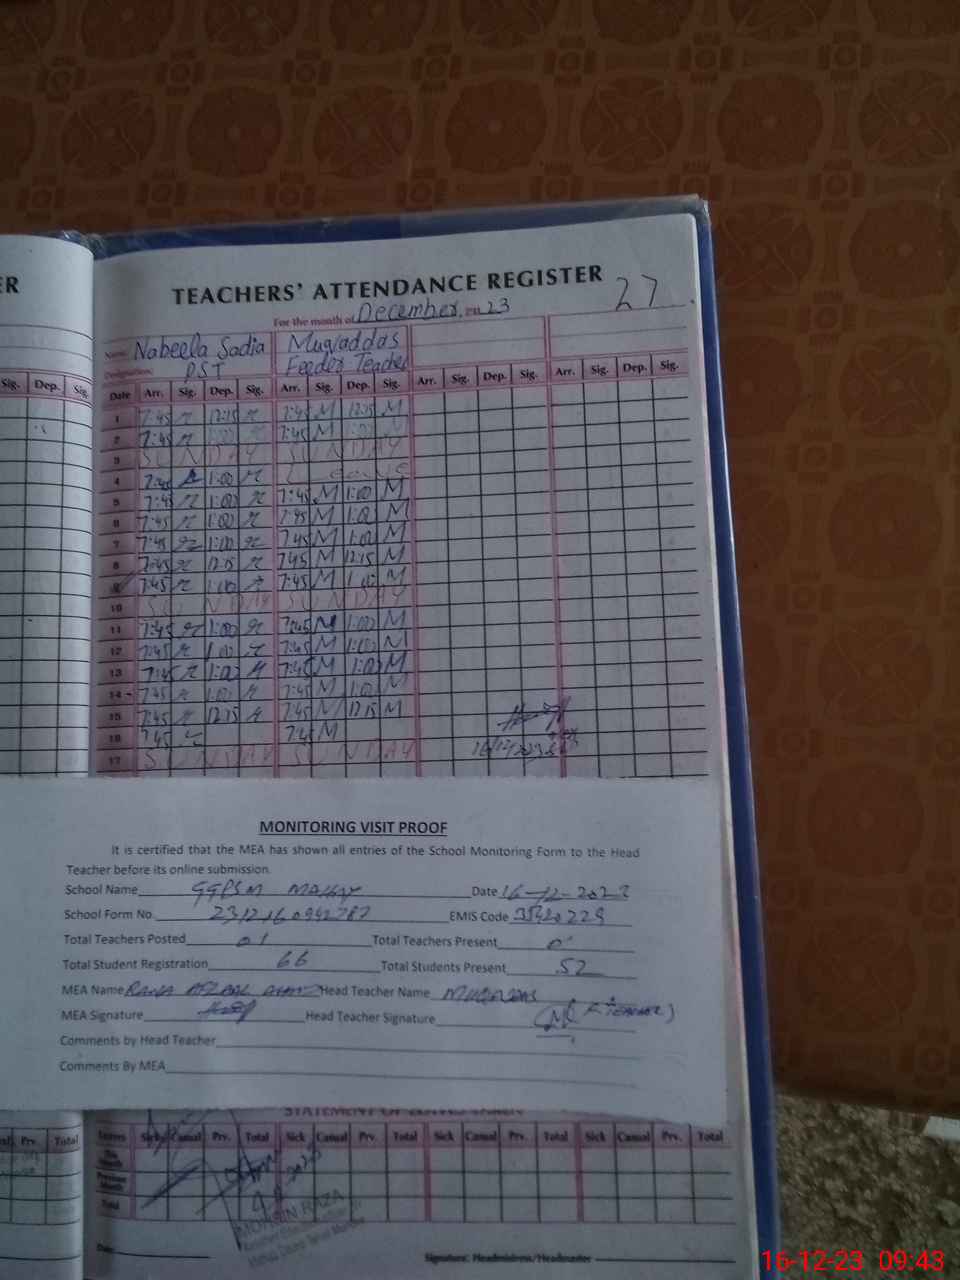 ER
TEACHERS' ATTENDANCE REGISTER
27
For the month of December, 23
Name Nabeela Sadia Muqaddas
Designation PST Feeder Teacher
Sig. Dep. Sig. Date Arr. Sig. Dep. Sig. Arr. Sig. Dep. Sig. Arr. Sig. Dep. Sig. Arr. Sig. Dep. Sig.
1 7:45 12:15 7:45 M 12:15 M
2 7:45 1:00 7:45 M 1:00 M
3 SUNDAY SUNDAY
4 7:45 1:00 Leave
5 7:45 1:00 7:45 M 1:00 M
6 7:45 1:00 7:45 M 1:00 M
7 7:45 1:00 7:45 M 1:00 M
8 7:45 12:15 7:45 M 12:15 M
9 7:45 1:00 7:45 M 1:00 M
10 SUNDAY SUNDAY
11 7:45 1:00 7:45 M 1:00 M
12 7:45 1:00 7:45 M 1:00 M
13 7:45 1:00 7:45 M 1:00 M
14 7:45 1:00 7:45 M 1:00 M
15 7:45 12:15 7:45 M 12:15 M
16 7:45 7:45 M 16/12/2023
17 SUNDAY SUNDAY
MONITORING VISIT PROOF
It is certified that the MEA has shown all entries of the School Monitoring Form to the Head
Teacher before its online submission.
School Name Date 16-12-2023
School Form No. EMIS Code
Total Teachers Posted 01 Total Teachers Present
Total Student Registration 66 Total Students Present 52
MEA Name RANA Head Teacher Name
MEA Signature Head Teacher Signature
Comments by Head Teacher
Comments By MEA
Prv. Total Leaves Sick Casual Prv. Total Sick Casual Prv. Total Sick Casual Prv. Total Sick Casual Prv. Total
This Month
Previous Month
Total
MOHSIN RAZA
Date
Signature: Headmistress/Headmaster
16-12-23 09:43